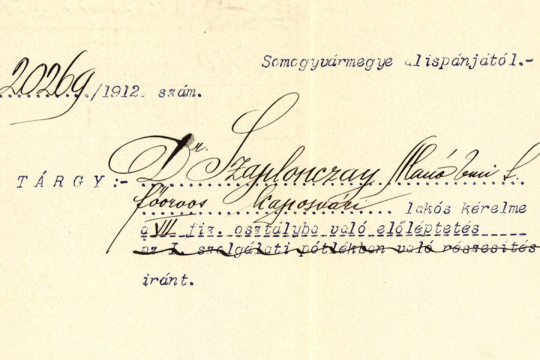 Somogyvármegye alispánjától.-
20269/1912. szám.
TÁRGY:- Dr. Szaplonczay Manó
főorvos kaposvári lakós kérelme
a VII fiz. osztályba való előléptetés
az I. szolgálati pótlékban való részesítés
iránt.